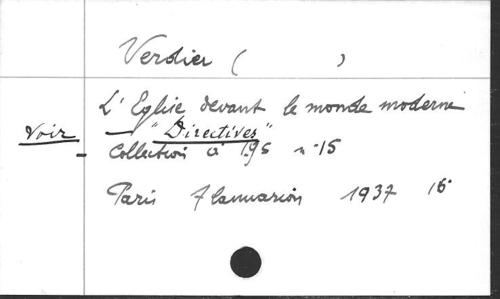 Verdier ( )
L'Eglise devant le monde moderne
Voir — "Directives"
Collection à 1.95 n° 15
Paris Flammarion 1937 16